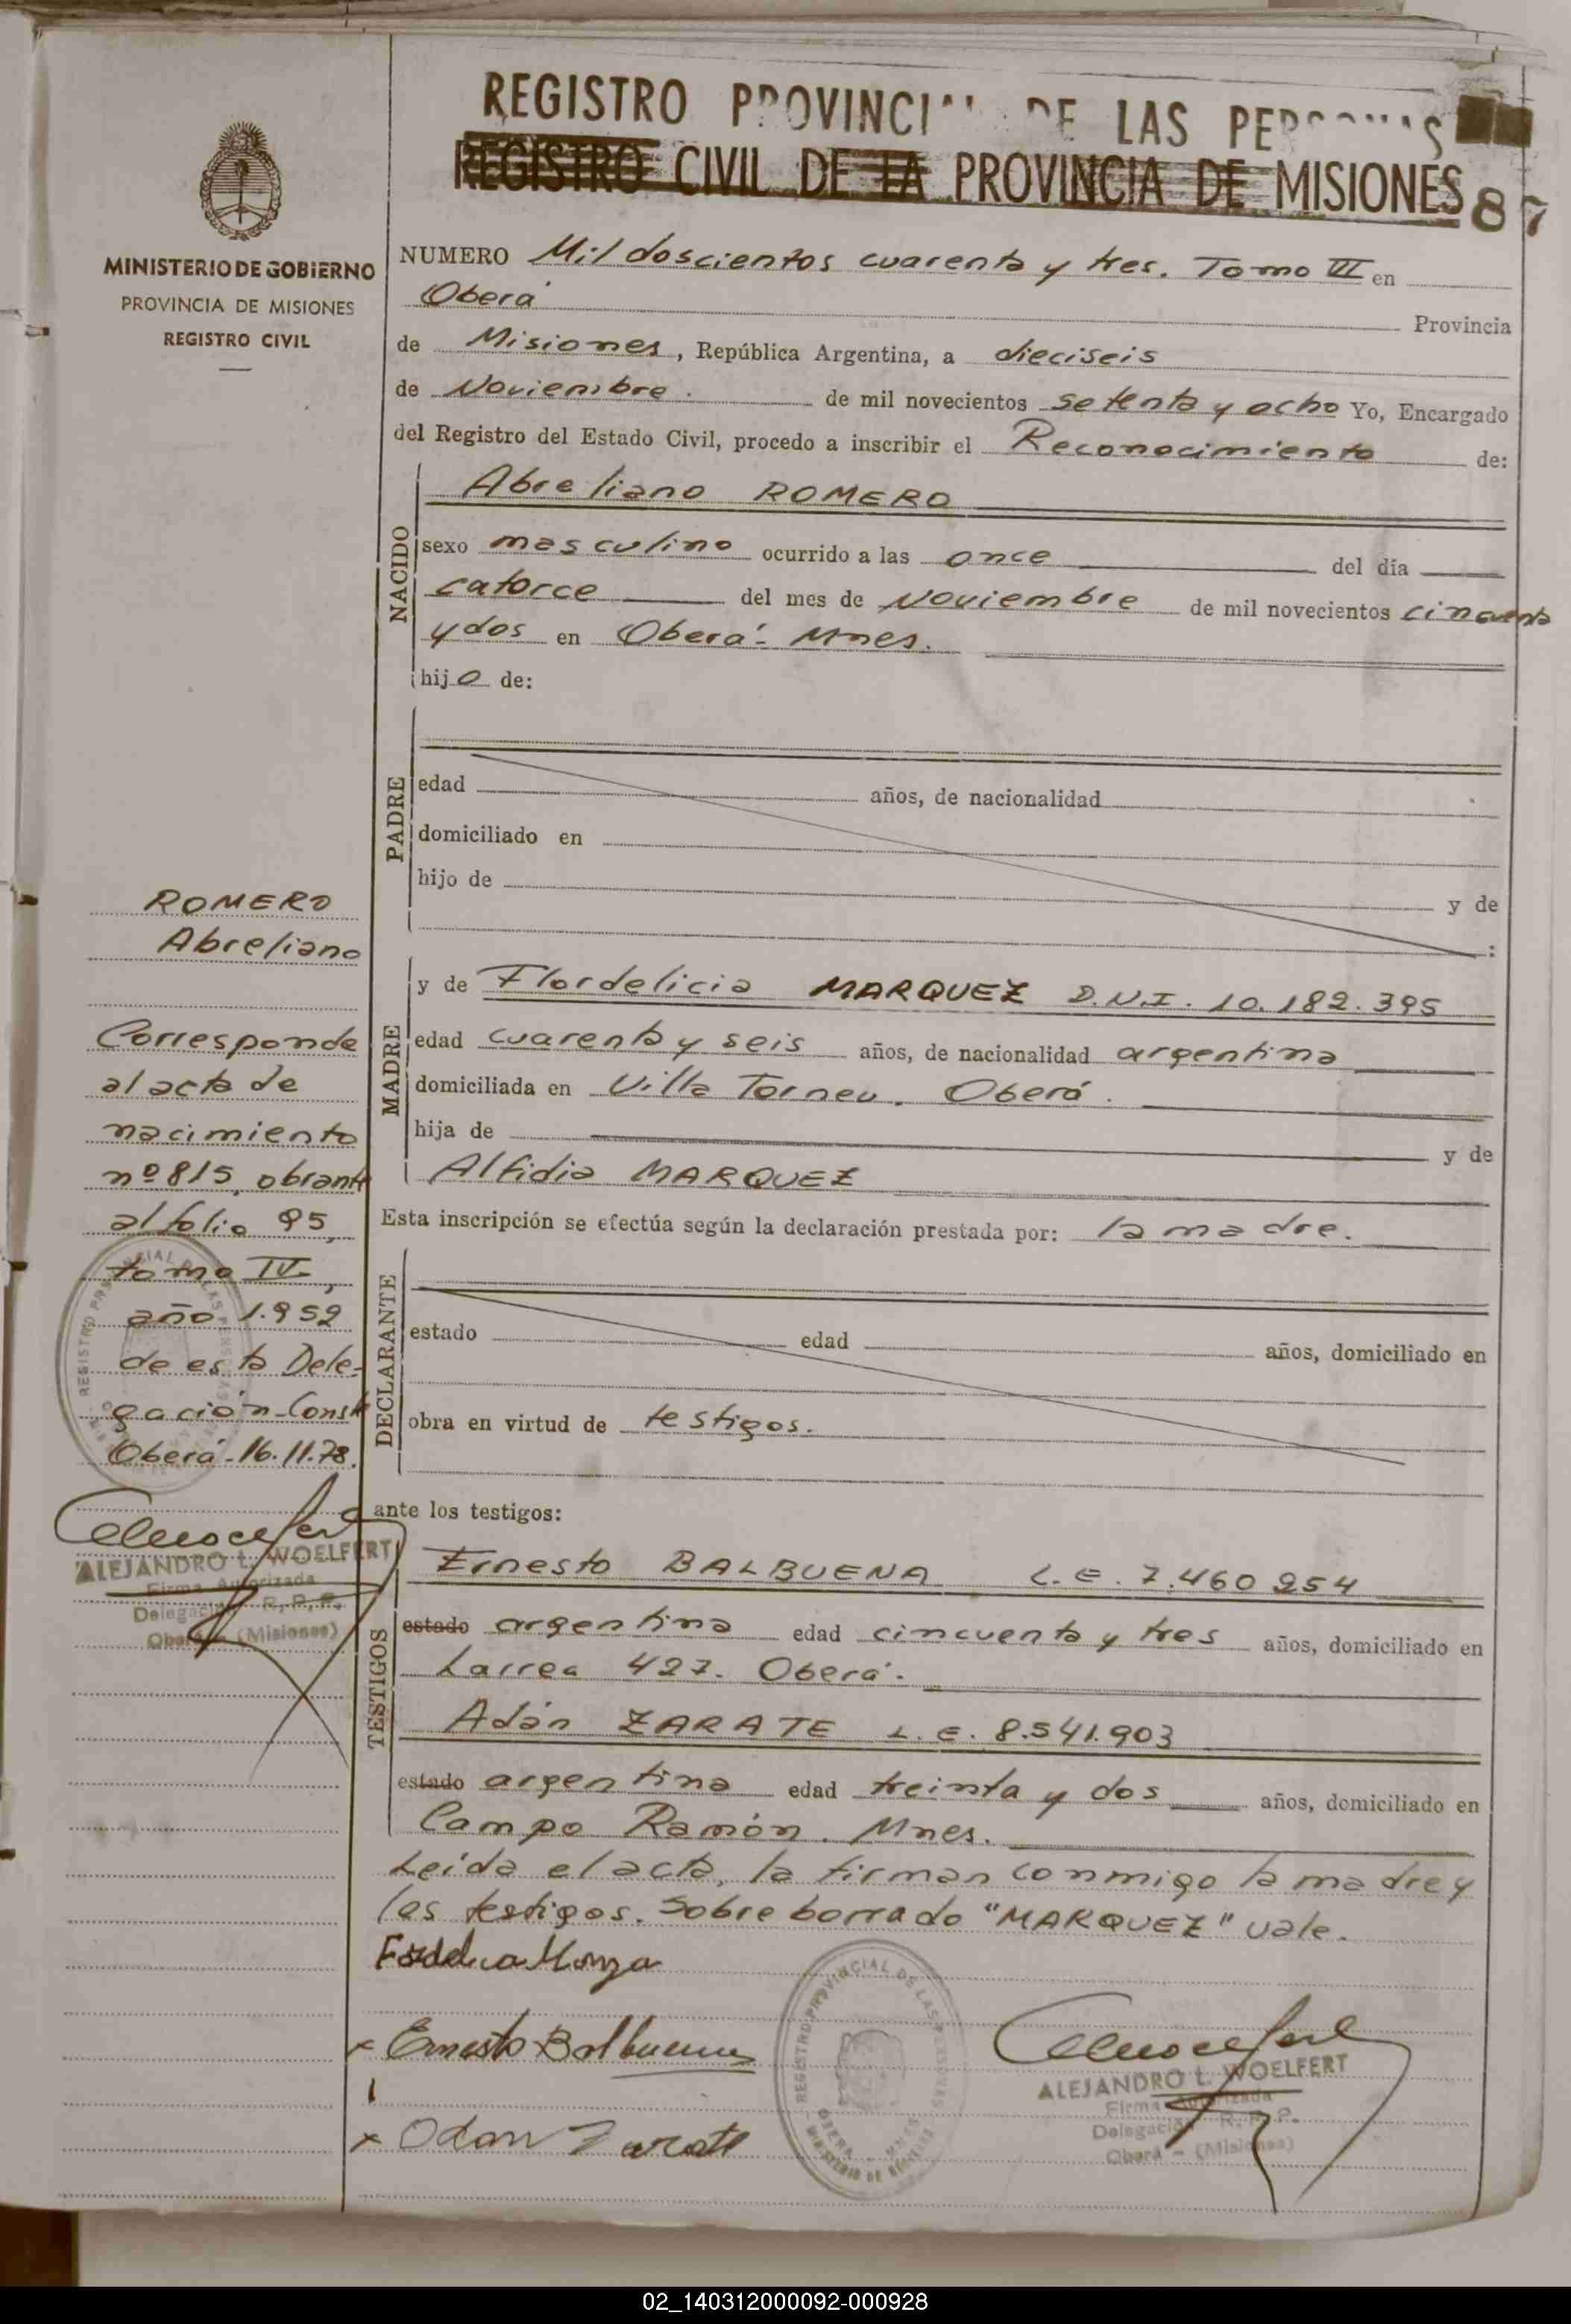 REGISTRO PROVINCIAL DE LAS PERSONAS
REGISTRO CIVIL DE LA PROVINCIA DE MISIONES
87
MINISTERIO DE GOBIERNO
PROVINCIA DE MISIONES
REGISTRO CIVIL
NUMERO Mil doscientos cuarenta y tres. Tomo VII en
Oberá Provincia
de Misiones, República Argentina, a dieciseis
de Noviembre. de mil novecientos setenta y ocho Yo, Encargado
del Registro del Estado Civil, procedo a inscribir el Reconocimiento de:
NACIDO
Abreliano ROMERO
sexo masculino ocurrido a las once del día
catorce del mes de Noviembre de mil novecientos cincuenta
y dos en Oberá - Mnes.
hijo de:
PADRE
edad años, de nacionalidad
domiciliado en
hijo de y de
:
MADRE
y de Flordelicia MARQUEZ D.N.I. 10.182.395
edad cuarenta y seis años, de nacionalidad argentina
domiciliada en Villa Torneu. Oberá.
hija de y de
Alfidia MARQUEZ
Esta inscripción se efectúa según la declaración prestada por: la madre.
DECLARANTE
estado edad años, domiciliado en
obra en virtud de testigos.
ante los testigos:
TESTIGOS
Ernesto BALBUENA L.E. 7.460 254
estado argentina edad cincuenta y tres años, domiciliado en
Larrea 427. Oberá.
Adán ZARATE L.E. 8.541.903
estado argentina edad treinta y dos años, domiciliado en
Campo Ramón. Mnes.
Leída el acta, la firman conmigo la madre y
los testigos. Sobre borrado "MARQUEZ" vale.
x Ernesto Balbuena
x Odan Zarate
REGISTRO PROVINCIAL DE LAS PERSONAS
OBERA - MNES
ALEJANDRO L. WOELFERT
Firma Autorizada
Delegación R. P. P.
Oberá - (Misiones)
ROMERO
Abreliano
Corresponde
al acta de
nacimiento
nº 815, obrante
al folio 95,
tomo IV,
año 1.952
de esta Dele-
gación. Const
Oberá - 16.11.78.
ALEJANDRO L. WOELFERT
Firma Autorizada
Delegación R. P. P.
Oberá - (Misiones)
02_140312000092-000928